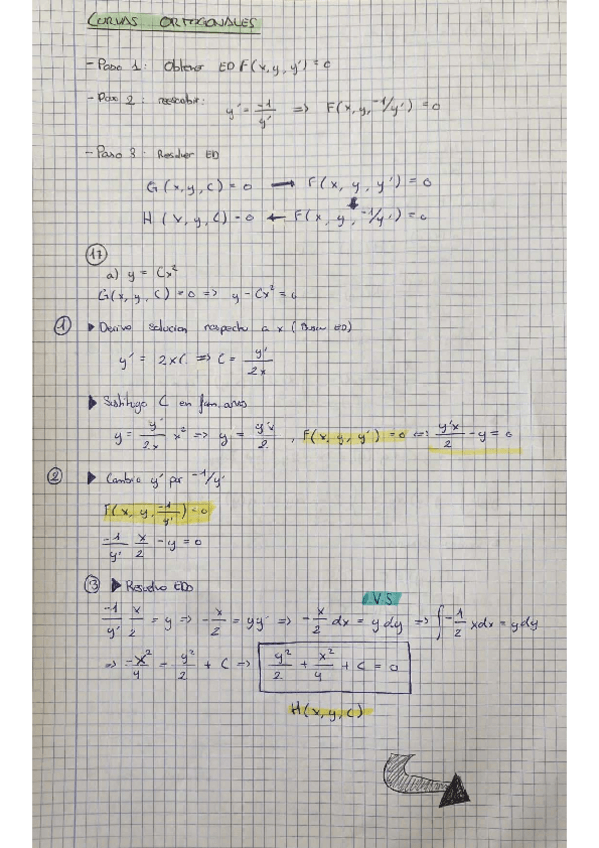 CURVAS ORTOGONALES
- Paso 1: Obtener ED F(x,y,y') = 0
- Paso 2: reescribir: y' = -1/y' => F(x,y,-1/y') = 0
- Paso 3: Resolver ED
G(x,y,C) = 0 → F(x, y, y') = 0
↓
H(x,y,C) = 0 ← F(x, y, -1/y') = 0
17
a) y = Cx²
G(x,y,C) = 0 => y - Cx² = 0
1 ▶ Derivo solucion respecto a x (Busco ED)
y' = 2xC => C = y'/2x
▶ Sustituyo C en
y = y'/2x x² => y = y'x/2 , F(x,y,y') = 0 <=> y'x/2 - y = 0
2 ▶ Cambio y' por -1/y'
F(x, y, -1/y') = 0
-1/y' x/2 - y = 0
3 ▶ Resuelvo EDs
V.S
-1/y' x/2 = y => -x/2 = yy' => -x/2 dx = y dy => ∫ -1/2 x dx = y dy
=> -x²/4 = y²/2 + C => y²/2 + x²/4 + C = 0
H(x,y,C)